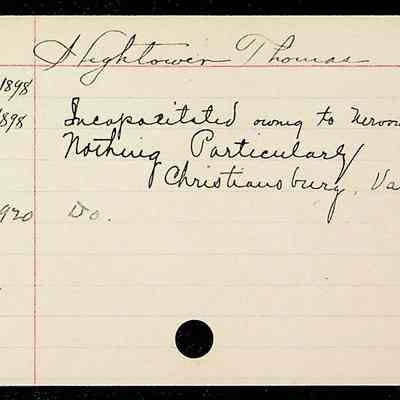 Hightower Thomas
1898
898 Incapacitated owing to nervou
Nothing Particularly
Christiansburg, Va
920 Do.